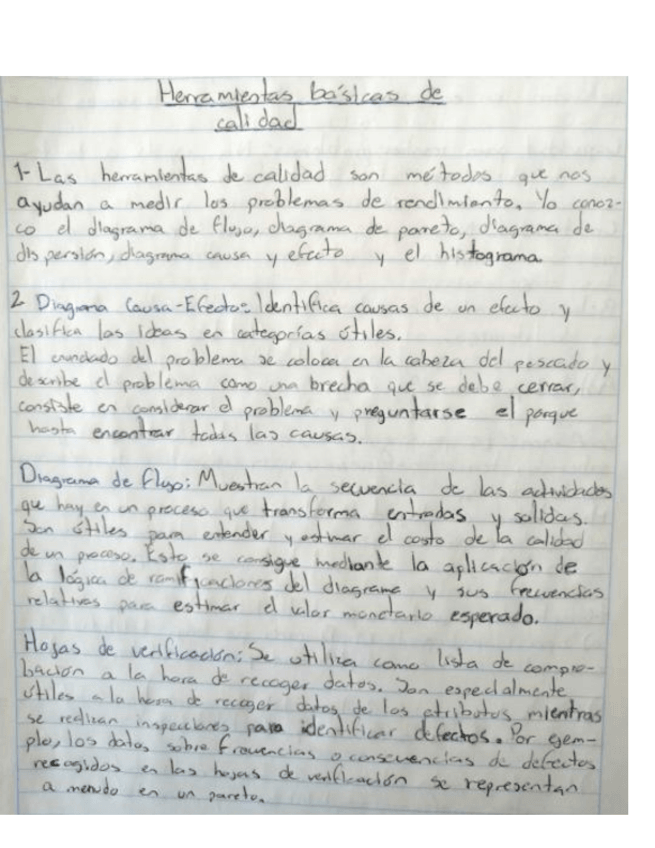 Herramientas básicas de
calidad
1- Las herramientas de calidad son métodos que nos
ayudan a medir los problemas de rendimiento. Yo conoz-
co el diagrama de flujo, diagrama de pareto, diagrama de
dispersión, diagrama causa y efecto y el histograma.
2 Diagrama Causa-Efecto: Identifica causas de un efecto y
clasifica las ideas en categorías útiles.
El enundado del problema se coloca en la cabeza del pescado y
describe el problema como una brecha que se debe cerrar,
consiste en considerar el problema y preguntarse el porque
hasta encontrar todas las causas.
Diagrama de flujo: Muestran la secuencia de las actividades
que hay en un proceso que transforma entradas y salidas.
Son útiles para entender y estimar el costo de la calidad
de un proceso. Esto se consigue mediante la aplicación de
la lógica de ramificaciones del diagrama y sus frecuencias
relativas para estimar el valor monetario esperado.
Hojas de verificación: Se utiliza como lista de compro-
bación a la hora de recoger datos. Son especialmente
útiles a la hora de recoger datos de los atributos mientras
se realizan inspecciones para identificar defectos. Por ejem-
plo, los datos sobre frecuencias o consecuencias de defectos
recogidos en las hojas de verificación se representan
a menudo en un pareto.